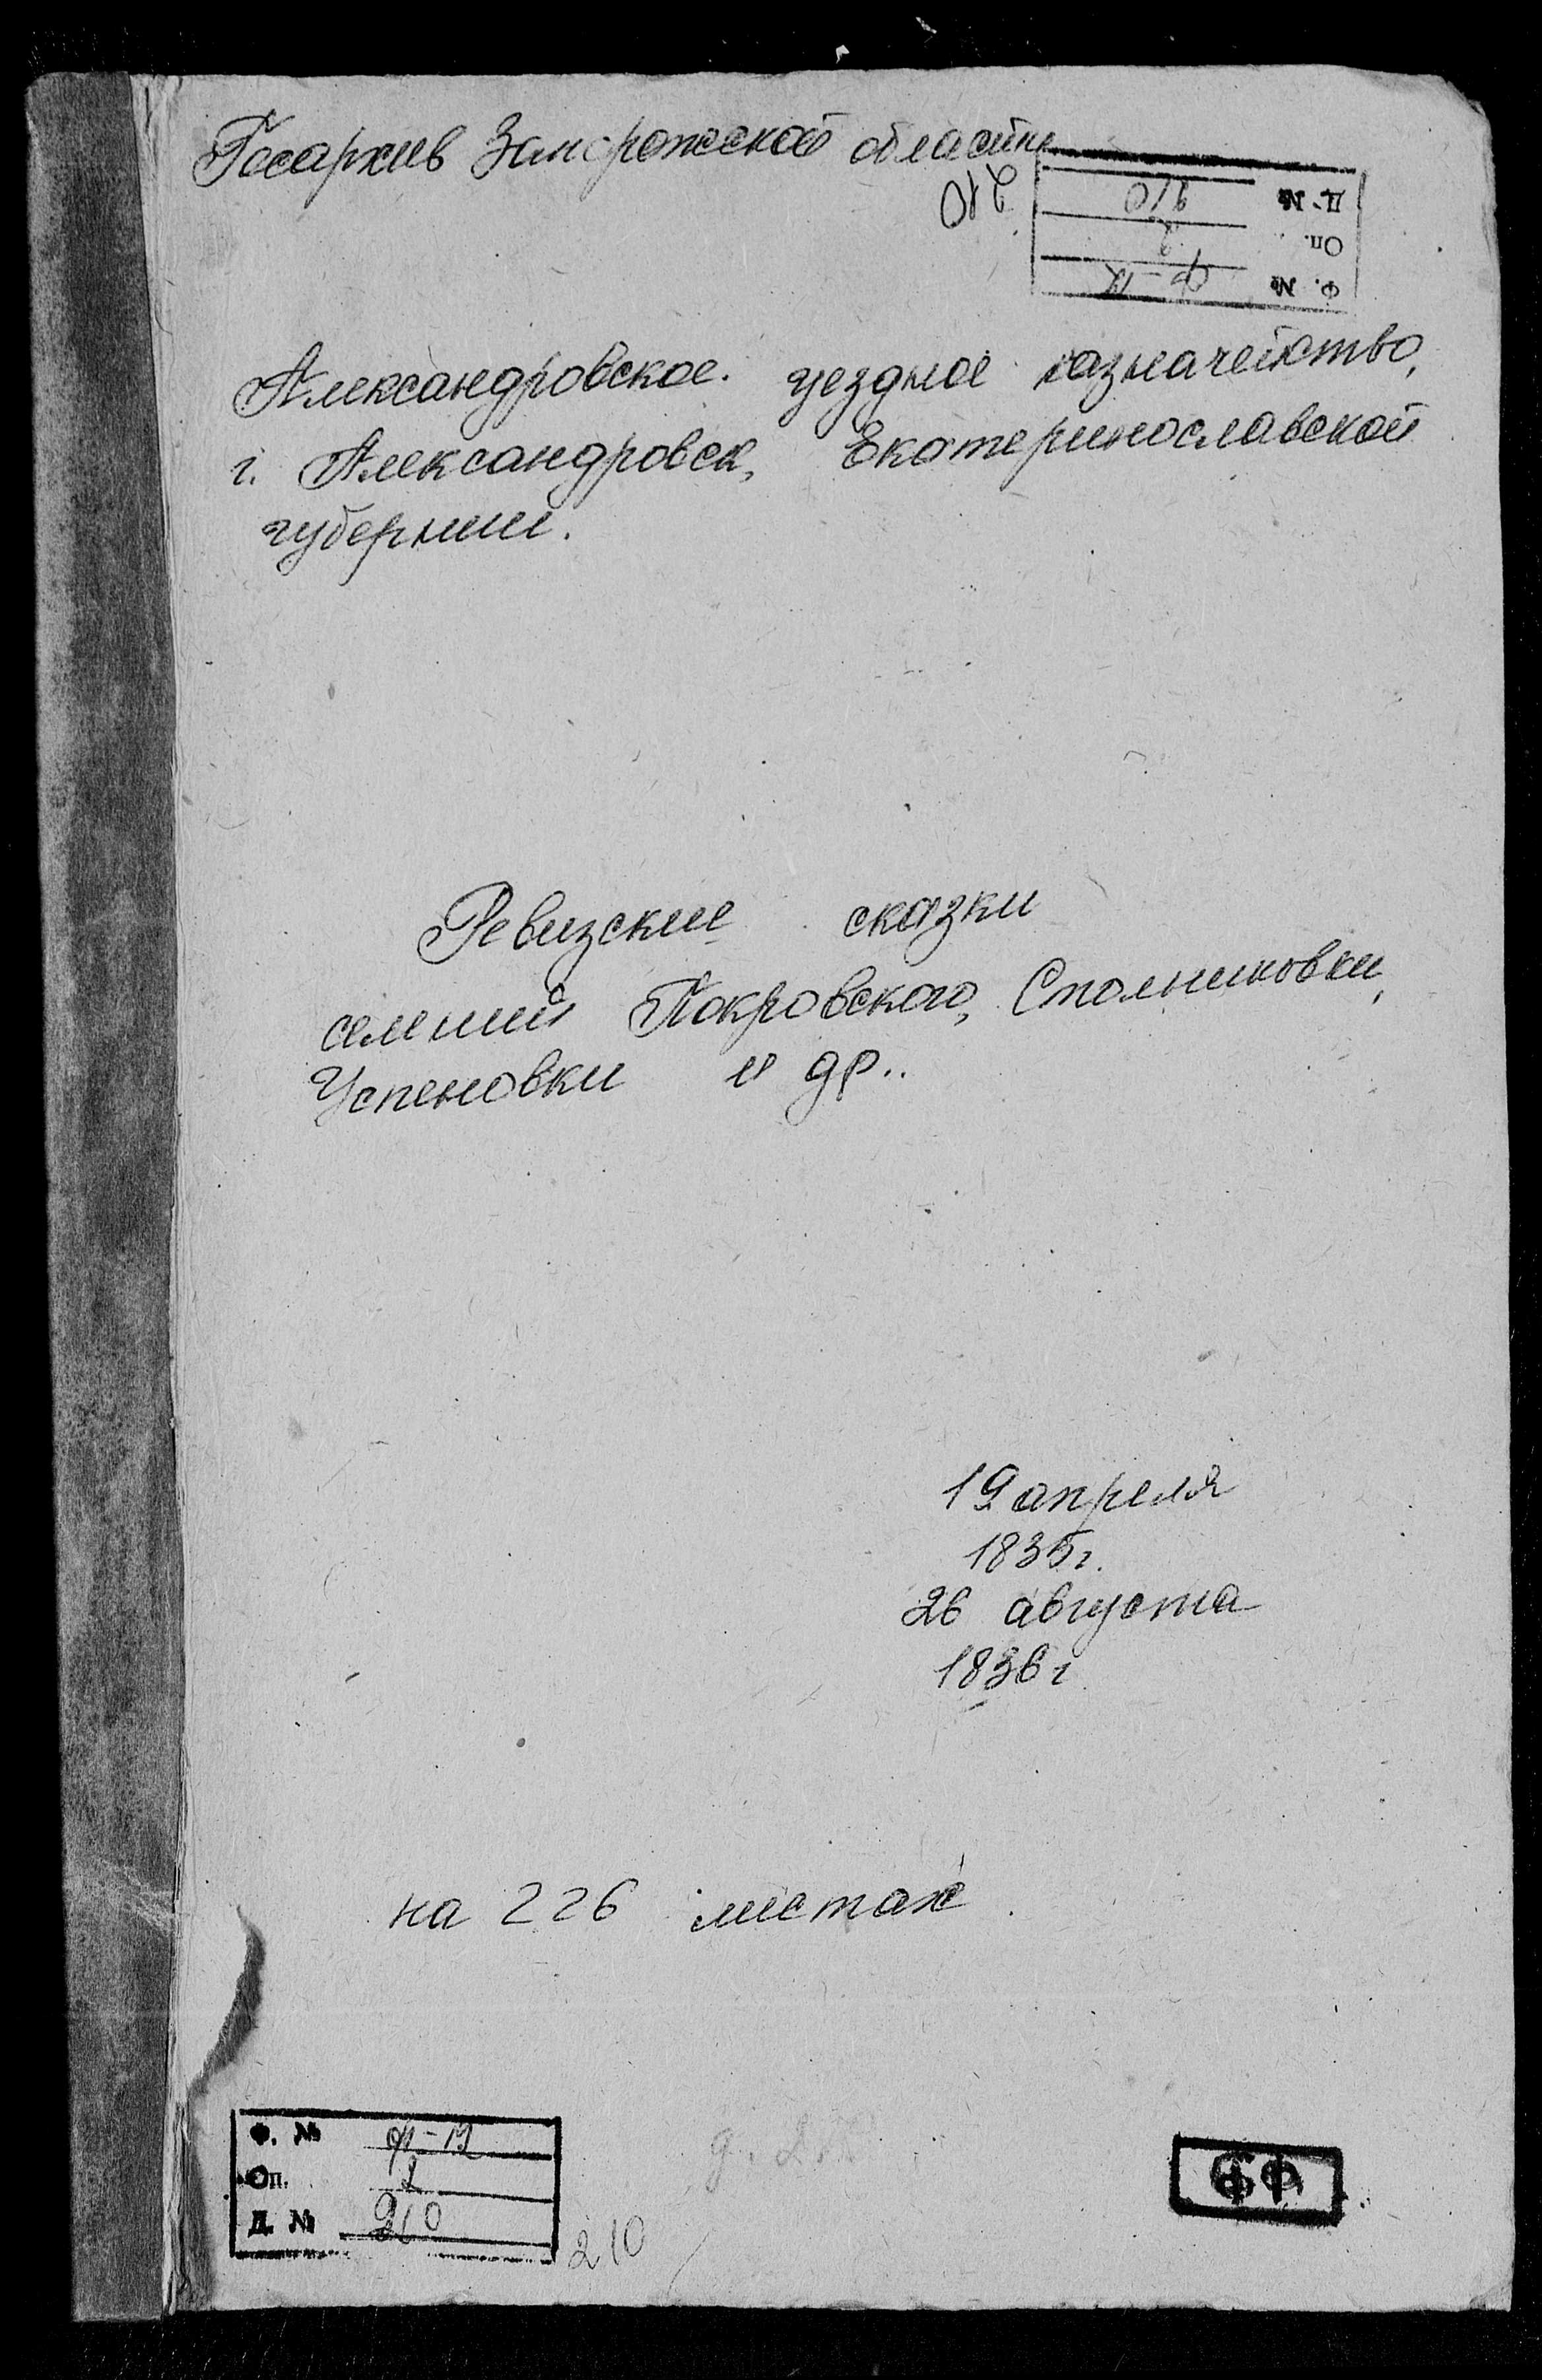 Госархив Запорожской области
210
Д. № 210
Оп. 2
Ф. №
Александровское уездное казначейство,
г. Александровск, Екатеринославской
губернии.
Ревизские сказки
селений Покровского, Столниковки,
Успеновки и др..
19 апреля
1835 г.
26 августа
1836 г
на 226 листах
Ф. № Ф-12
Оп. 2
Д. № 210
210